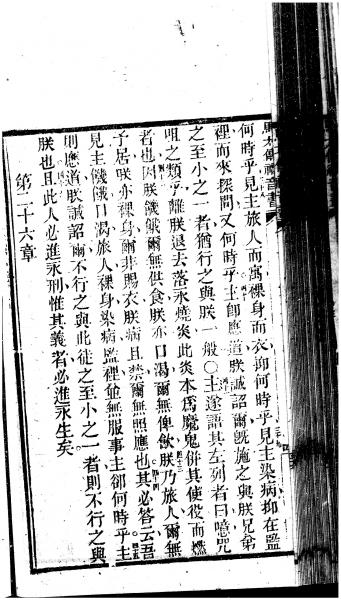 馬太傳福音書
何時乎見主旅人而寓裸身而衣抑何時乎見主染病抑在監
裡而來探問又何時乎主卽應道朕誠詔爾旣施之與朕兄弟
之至小之一者猶行之與朕一般○主遂語其左列者曰噫咒
咀之類乎離朕退去落永燒炎此炎本爲魔鬼併其使役而燃
者也因朕饑餓爾無供食朕亦口渴爾無俾飲朕乃旅人爾無
子居朕亦裸身爾非賜衣朕病且禁爾無照應也其必答云吾
見主饑餓口渴旅人裸身染病監裡並無服事主卻何時乎主
則應道朕誠詔爾不行之與此徒之至小之一者則不行之與
朕也且此人必進永刑惟其義者必進永生矣
第二十六章